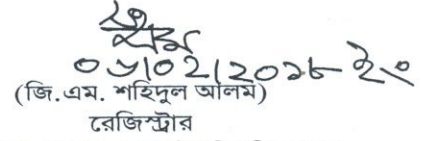 ০৮/০২/২০১৮ ইং
(জি.এম. শহিদুল আলম)
রেজিস্ট্রার